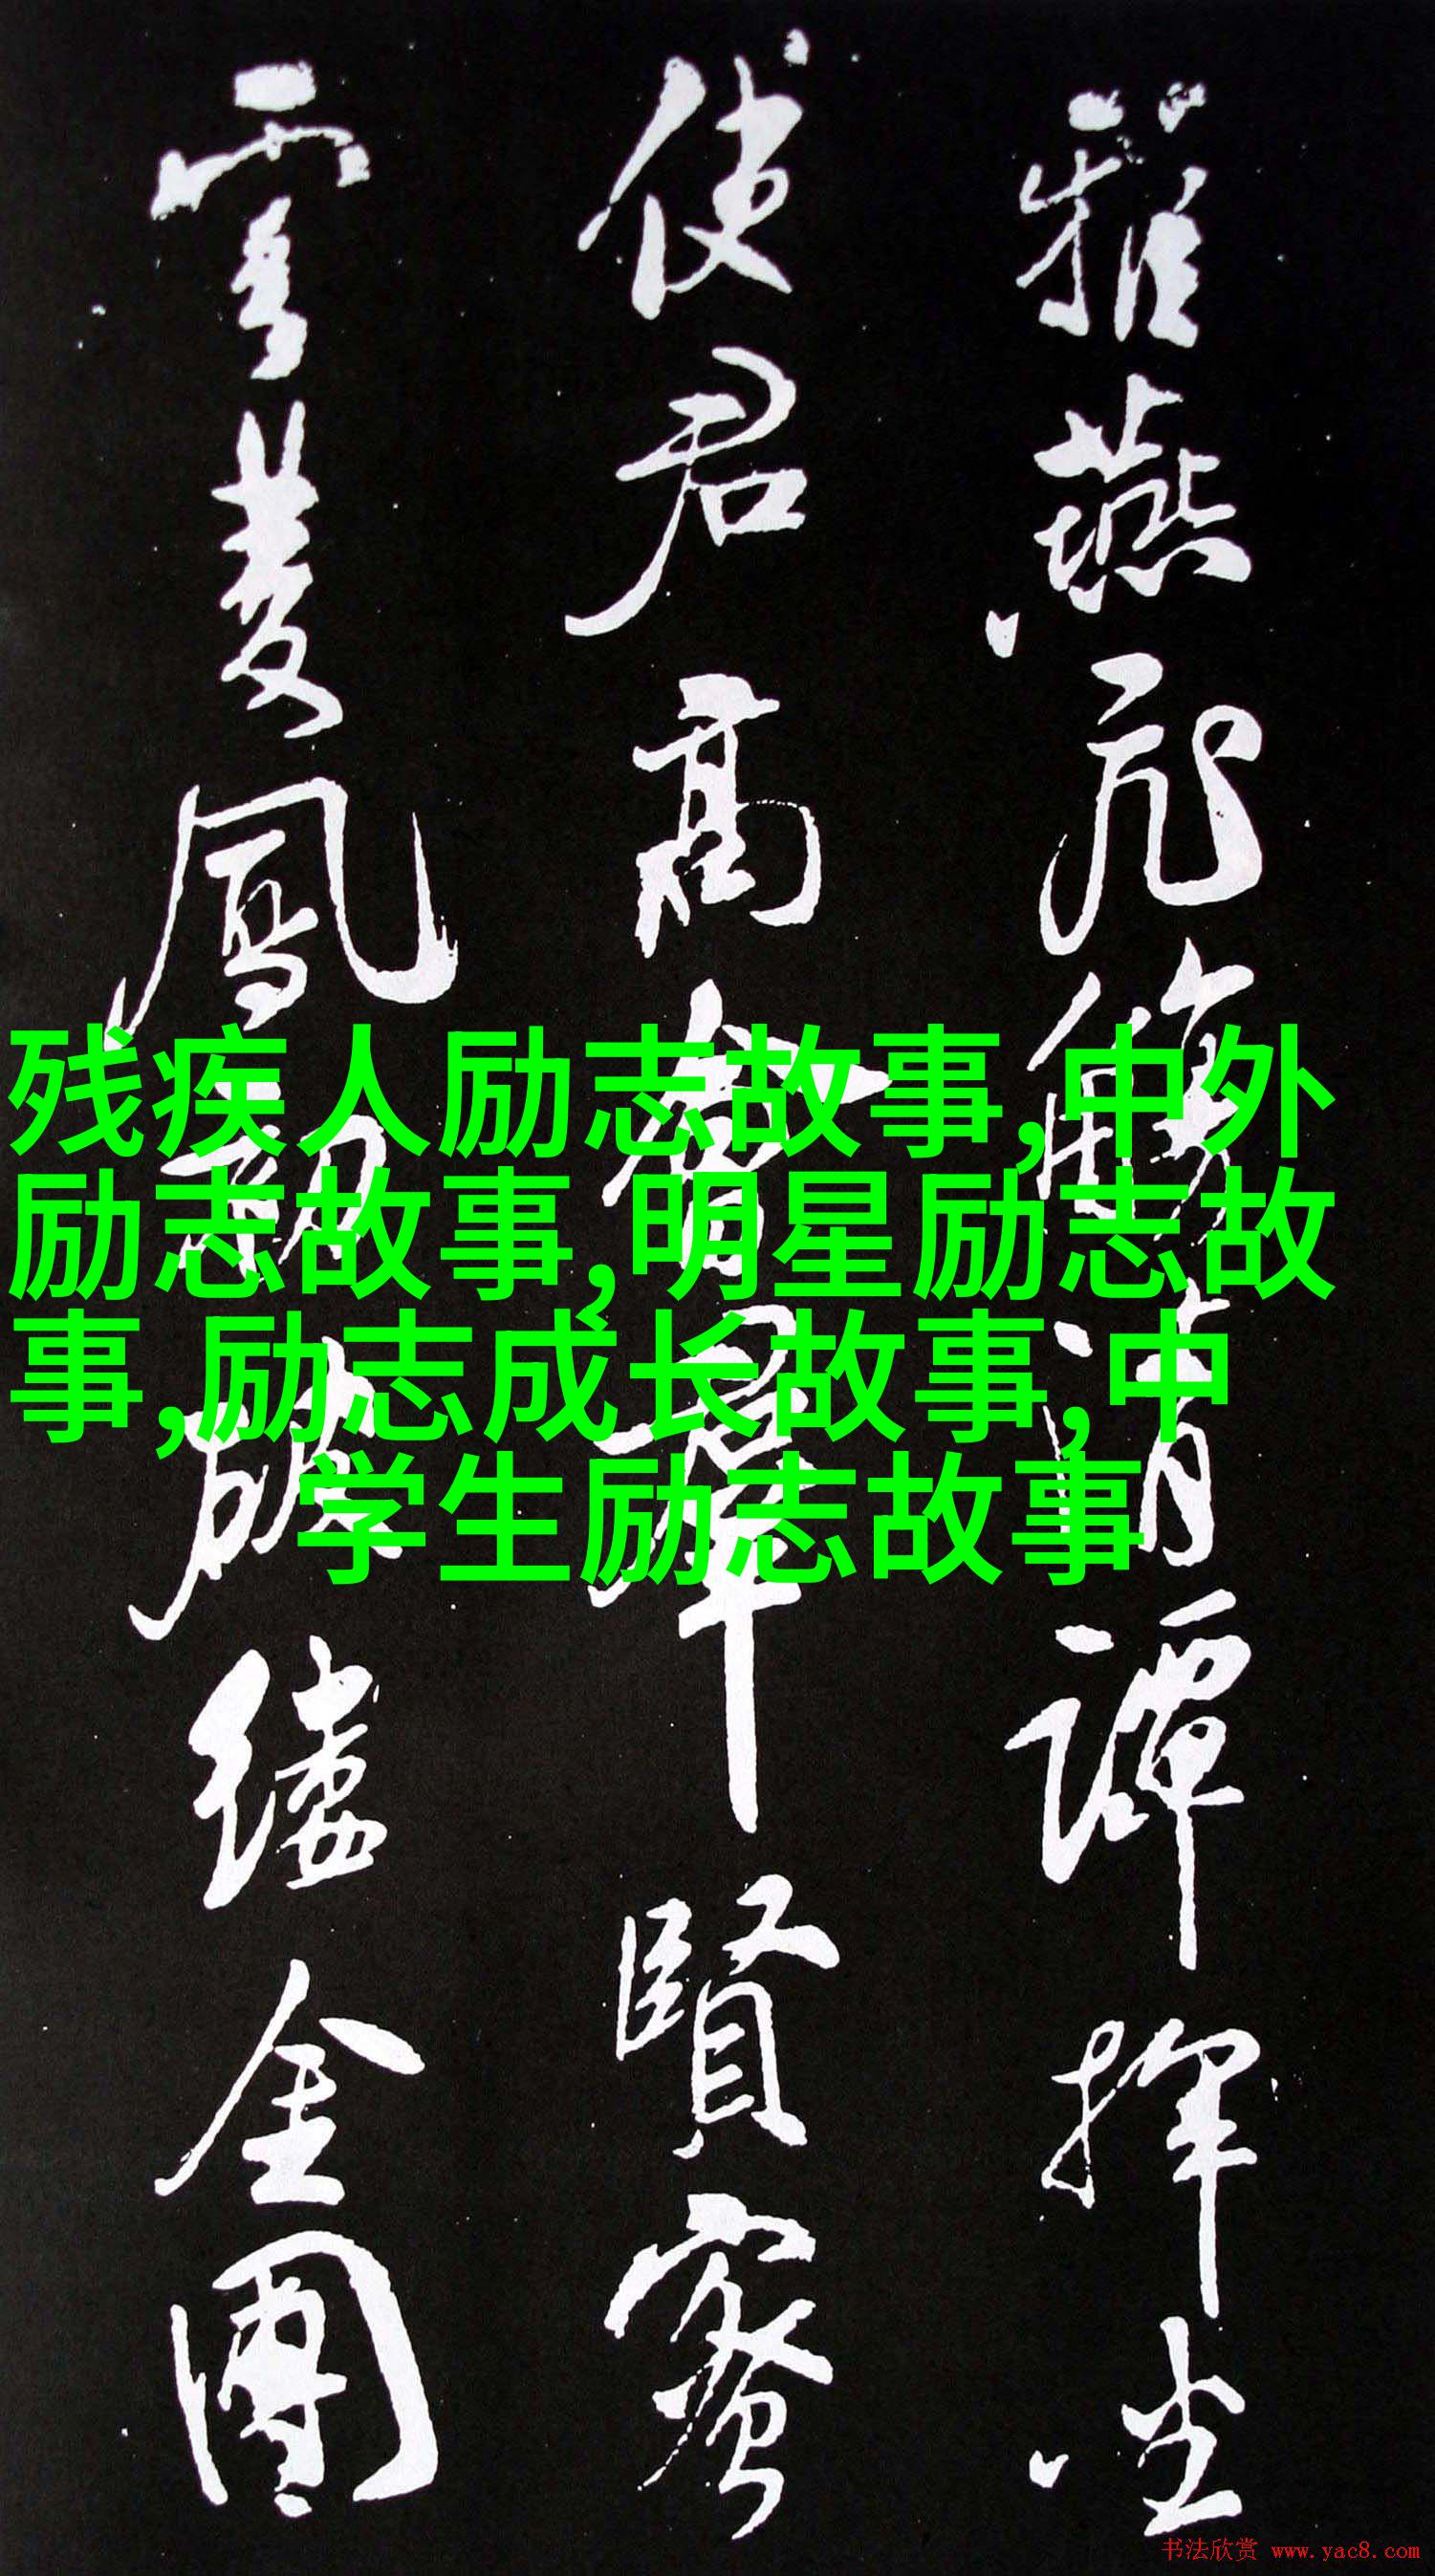 雅燕飛觴清譚揮坐
使君高會群賢密
雲雙鳳初破縷金團
残疾人励志故事,中外
励志故事,明星励志故
事,励志成长故事,中
学生励志故事
书法欣赏 www.yac8.com